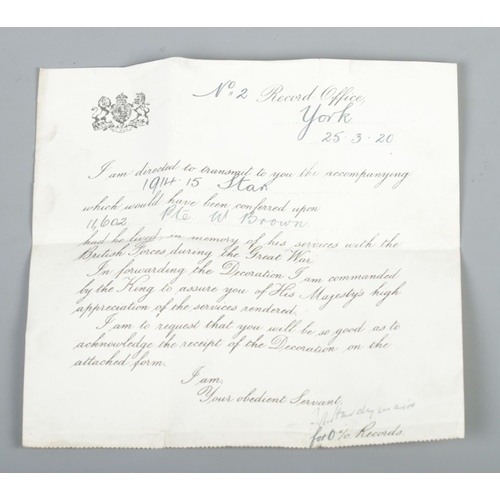 No. 2 Record Office,
York
25-3-20
I am directed to transmit to you the accompanying
1914 15 Star
which would have been conferred upon
11,602 Pte W Brown
had he lived, in memory of his services with the
British Forces during the Great War.
In forwarding the Decoration I am commanded
by the King to assure you of His Majesty's high
appreciation of the services rendered.
I am to request that you will be so good as to
acknowledge the receipt of the Decoration on the
attached form.
I am,
Your obedient Servant,
for O i/c Records.